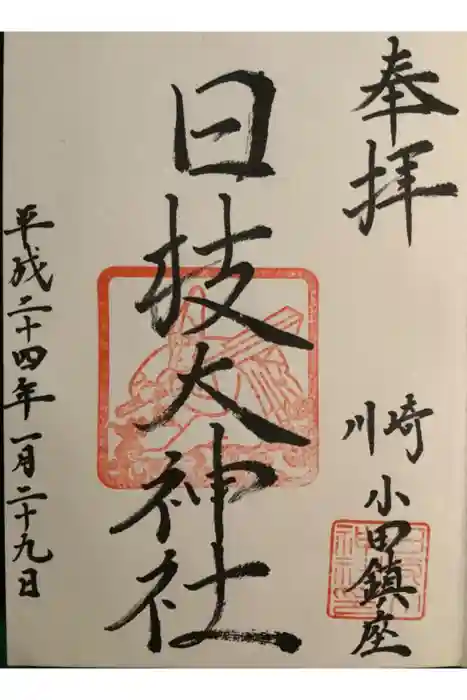 奉拝
川崎
小田鎮座
日枝大神社
平成二十四年一月二十九日